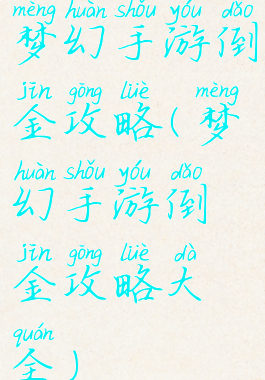 mèng huàn shǒu yóu dǎo
梦幻手游倒
jīn gōng lüè mèng
金攻略(梦
huàn shǒu yóu dǎo
幻手游倒
jīn gōng lüè dà
金攻略大
quán
全)